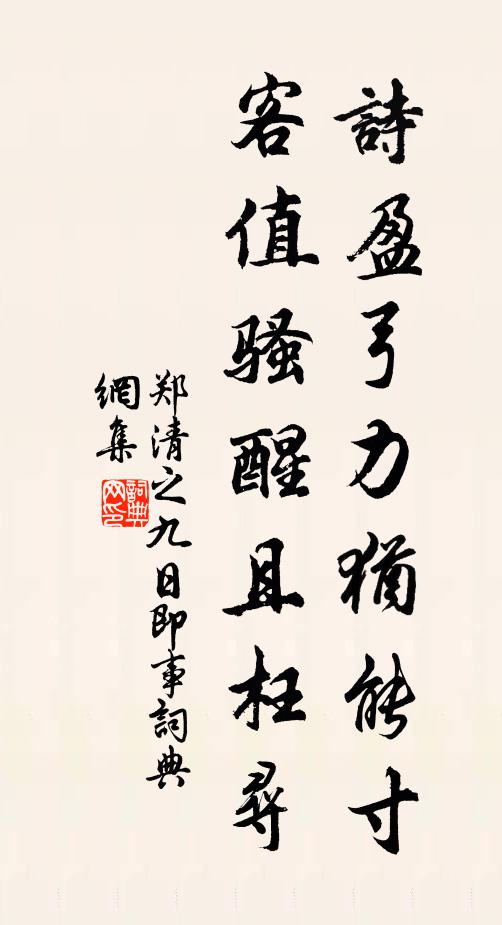 詩盈弓力猶能寸
客值骚醒且枉尋
郑清之九日即事詞典
網集
詞典网印